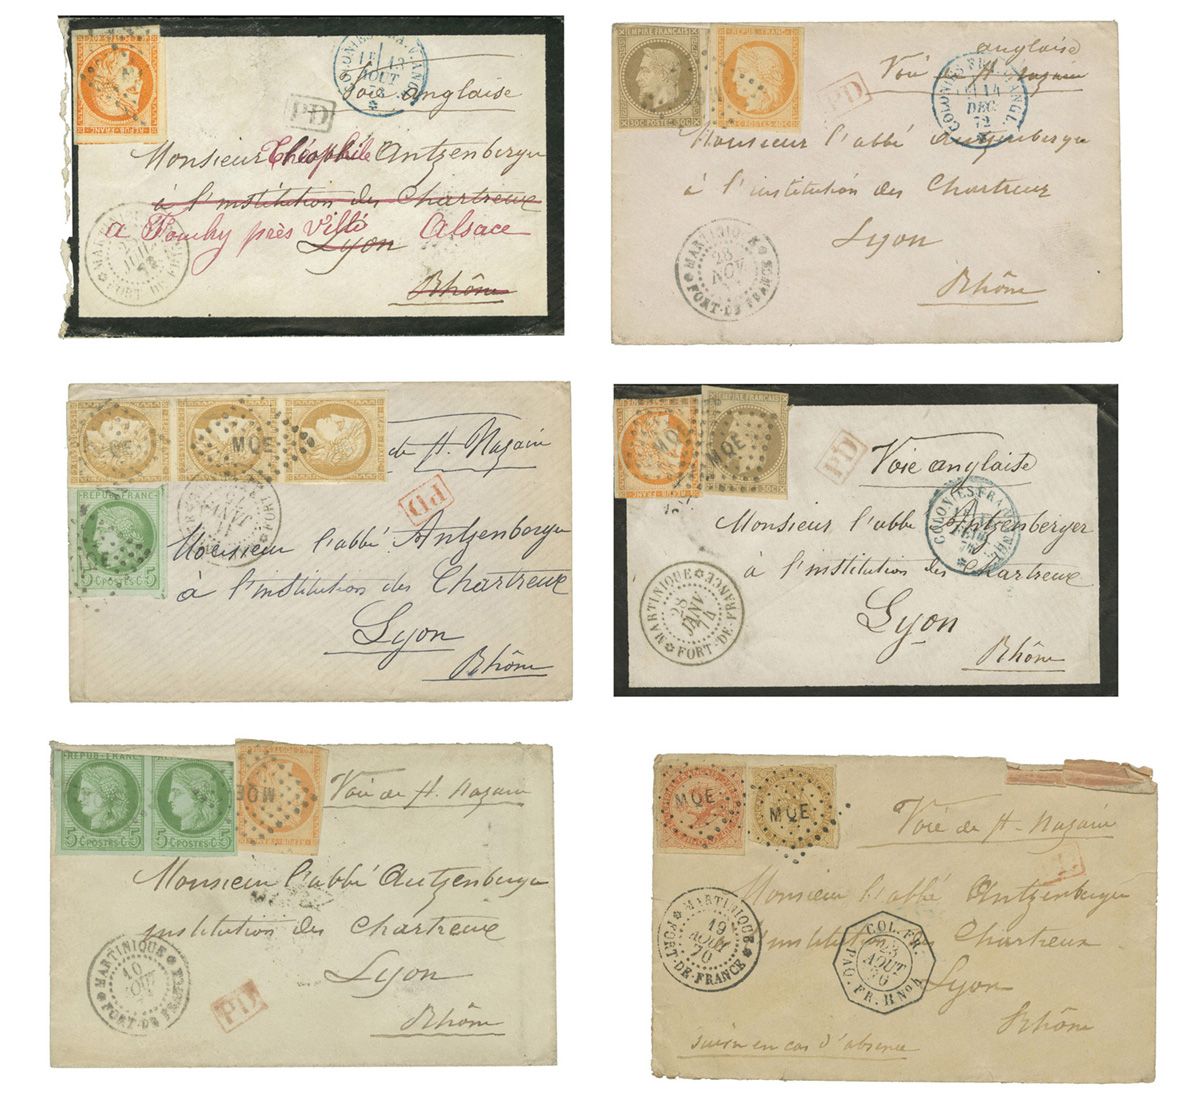 COLONIES FRA. V. ANGL.
13
AOUT
Voie Anglaise
PD
Monsieur Théophile Antzenberger
à l'institution des Chartreux
a Fouchy près Villé Alsace
Lyon
Rhône
MARTINIQUE
FORT-DE-FRANCE
EMPIRE FRANÇAIS
30C POSTES 30C
REPUB. FRANC.
POSTES 40C
anglaise
Voie de St Nazaire
PD
COLONIES FR. V. ANGL.
14
DEC
72
Monsieur l'abbé Antzenberger
à l'institution des Chartreux
Lyon
Rhône
MARTINIQUE
26
NOV
FORT-DE-FRANCE
MQE
Voie de St Nazaire
PD
REPUB. FRANC.
5 C POSTES 5
JANV
Monsieur l'abbé Antzenberger
à l'institution des Chartreux
Lyon
Rhône
MQE
MQE
EMPIRE FRANÇAIS
30C
PD
Voie anglaise
COLONIES FR. V. ANGL.
Monsieur l'abbé Antzenberger
à l'institution des Chartreux
Lyon
Rhône
MARTINIQUE
28
JANV
74
FORT-DE-FRANCE
REPUB. FRANC.
5 C POSTES 5
REPUB. FRANC.
5 C POSTES 5
MQE
Voie de St Nazaire
Monsieur l'abbé Antzenberger
institution des Chartreux
Lyon
Rhône
MARTINIQUE
10
FORT-DE-FRANCE
PD
MQE
MQE
Voie de St Nazaire
Monsieur l'abbé Antzenberger
l'institution des Chartreux
Lyon
Rhône
MARTINIQUE
19
AOUT
70
FORT-DE-FRANCE
COL. FR.
23
AOUT
PAQ. FR. B No 4
suivre en cas d'absence